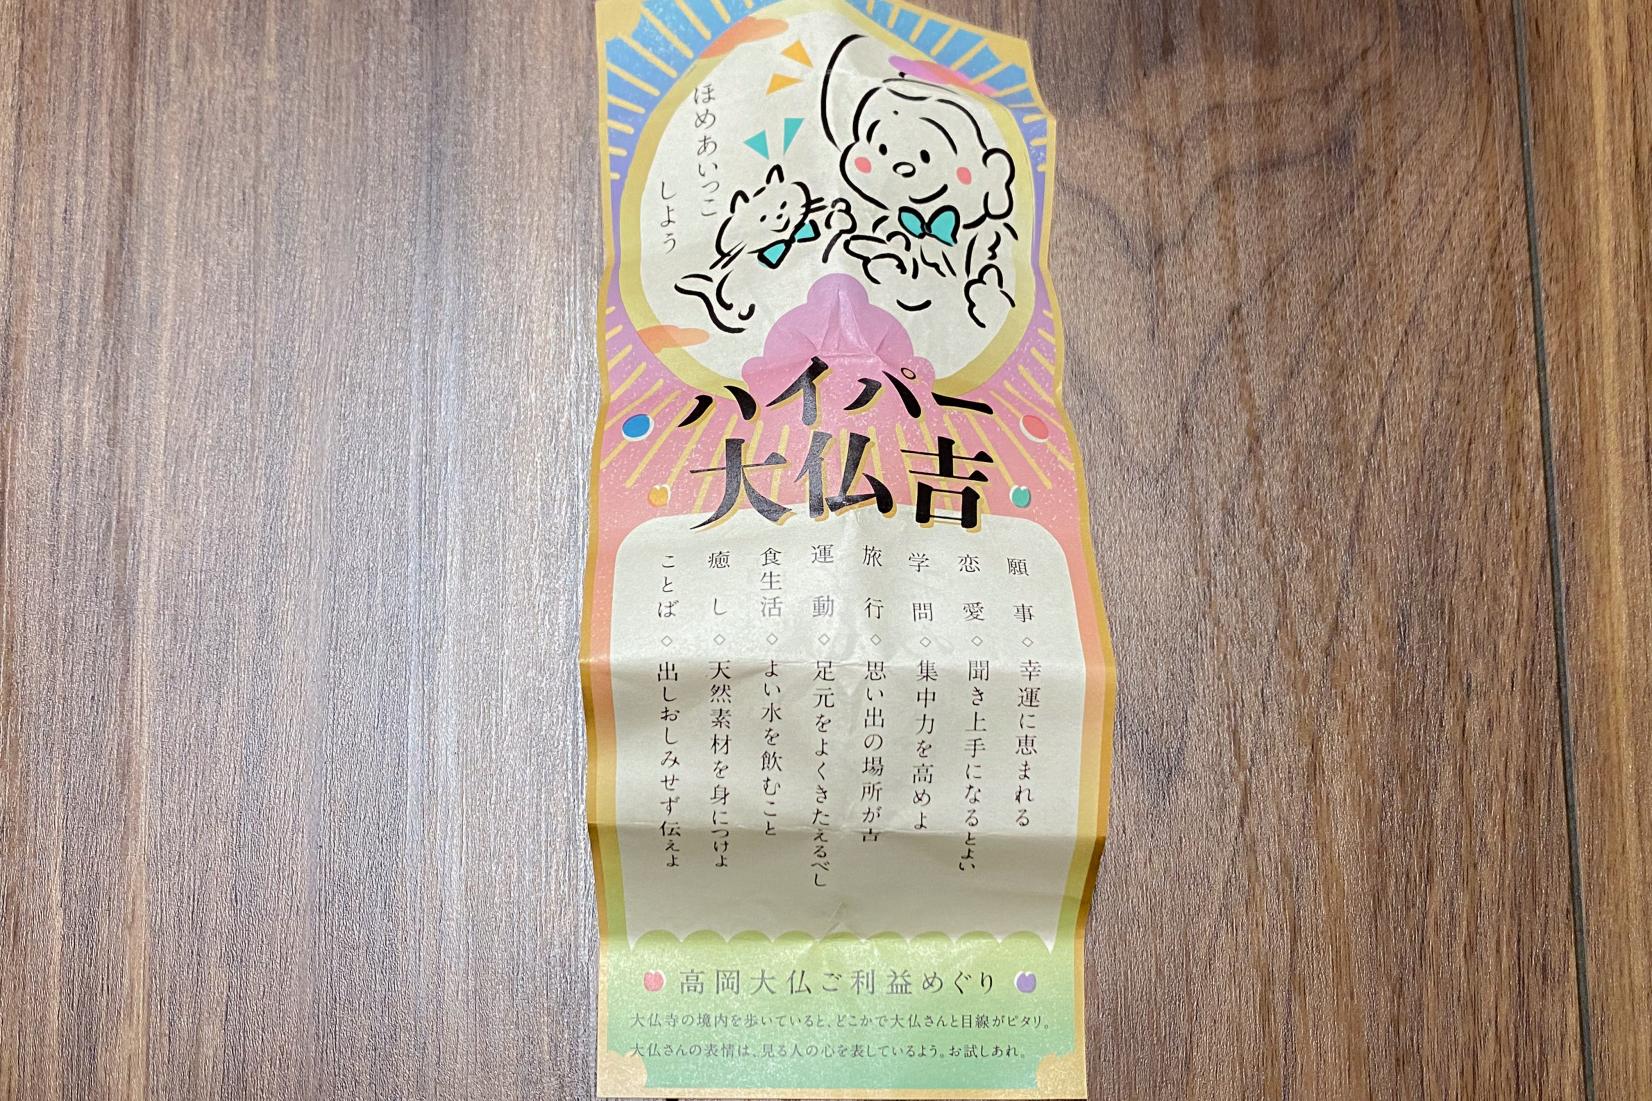 ほめあいっこ
しよう
ハイパー
大仏吉
願事◇幸運に恵まれる
恋愛◇聞き上手になるとよい
学問◇集中力を高めよ
旅行◇思い出の場所が吉
運動◇足元をよくきたえるべし
食生活◇よい水を飲むこと
癒し◇天然素材を身につけよ
ことば◇出しおしみせず伝えよ
高岡大仏ご利益めぐり
大仏寺の境内を歩いていると、どこかで大仏さんと目線がピタリ。
大仏さんの表情は、見る人の心を表しているよう。お試しあれ。